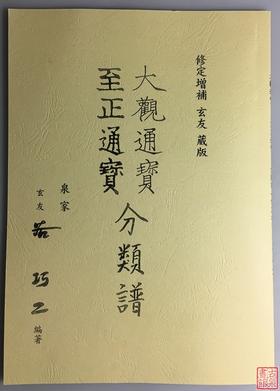 修定增補 玄友 藏版
大觀通寶
至正通寶
分類譜
泉家
玄友 谷巧二 編著